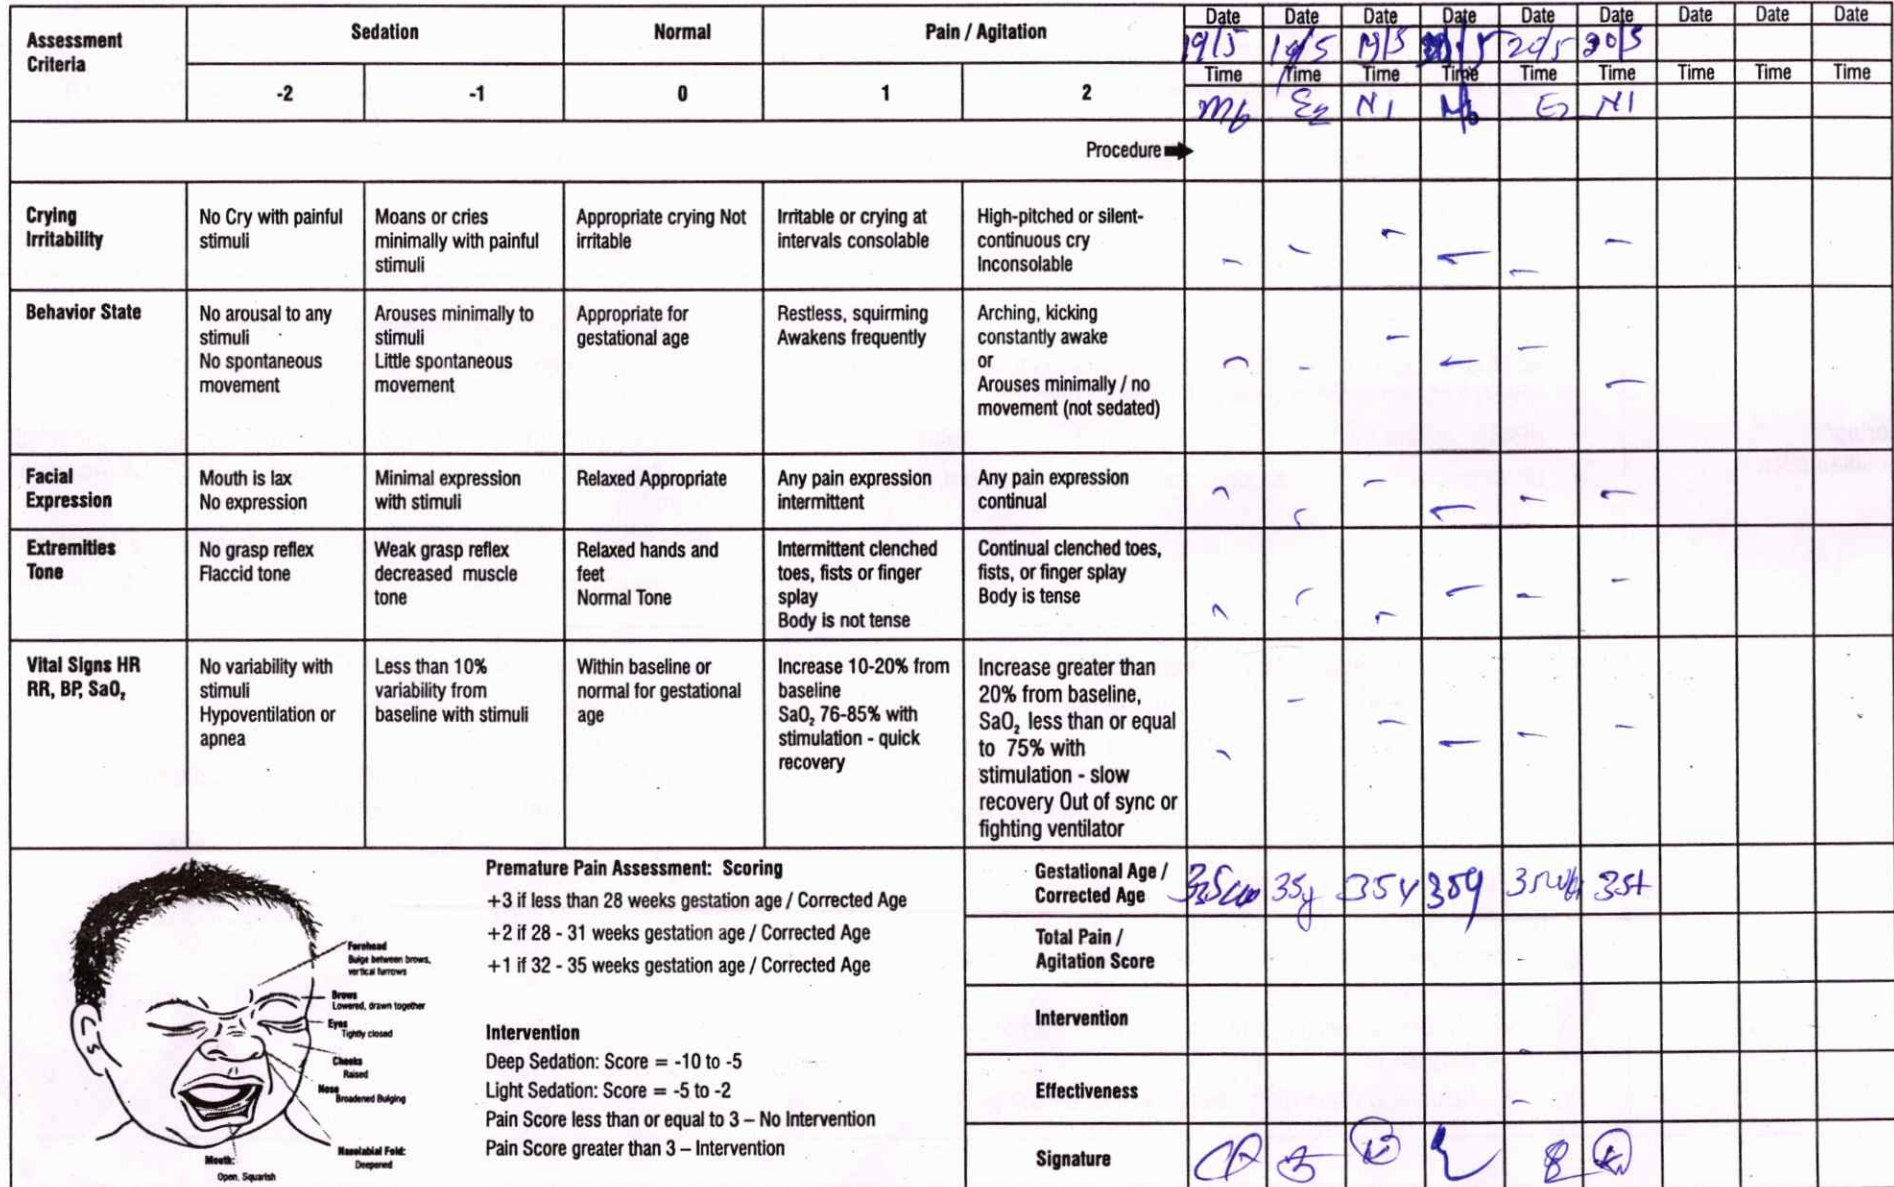 Assessment Criteria
Sedation
Normal
Pain / Agitation
-2
-1
0
1
2
Date Date Date Date Date Date Date Date Date
19/5 19/5 19/5 20/5 20/5
Time Time Time Time Time Time Time Time Time
M6 E2 N1 E2 N1
Procedure
Crying Irritability
No Cry with painful stimuli
Moans or cries minimally with painful stimuli
Appropriate crying Not irritable
Irritable or crying at intervals consolable
High-pitched or silent-continuous cry
Inconsolable
Behavior State
No arousal to any stimuli
No spontaneous movement
Arouses minimally to stimuli
Little spontaneous movement
Appropriate for gestational age
Restless, squirming
Awakens frequently
Arching, kicking constantly awake
or
Arouses minimally / no movement (not sedated)
Facial Expression
Mouth is lax
No expression
Minimal expression with stimuli
Relaxed Appropriate
Any pain expression intermittent
Any pain expression continual
Extremities Tone
No grasp reflex
Flaccid tone
Weak grasp reflex decreased muscle tone
Relaxed hands and feet
Normal Tone
Intermittent clenched toes, fists or finger splay
Body is not tense
Continual clenched toes, fists, or finger splay
Body is tense
Vital Signs HR RR, BP, SaO₂
No variability with stimuli
Hypoventilation or apnea
Less than 10% variability from baseline with stimuli
Within baseline or normal for gestational age
Increase 10-20% from baseline
SaO₂ 76-85% with stimulation - quick recovery
Increase greater than 20% from baseline, SaO₂ less than or equal to 75% with stimulation - slow recovery Out of sync or fighting ventilator
Forehead
Bulge between brows, vertical furrows
Brows
Lowered, drawn together
Eyes
Tightly closed
Cheeks
Raised
Nose
Broadened Bulging
Nasolabial Fold:
Deepened
Mouth:
Open, Squarish
Premature Pain Assessment: Scoring
+3 if less than 28 weeks gestation age / Corrected Age
+2 if 28 - 31 weeks gestation age / Corrected Age
+1 if 32 - 35 weeks gestation age / Corrected Age
Intervention
Deep Sedation: Score = -10 to -5
Light Sedation: Score = -5 to -2
Pain Score less than or equal to 3 – No Intervention
Pain Score greater than 3 – Intervention
Gestational Age / Corrected Age
Total Pain / Agitation Score
Intervention
Effectiveness
Signature